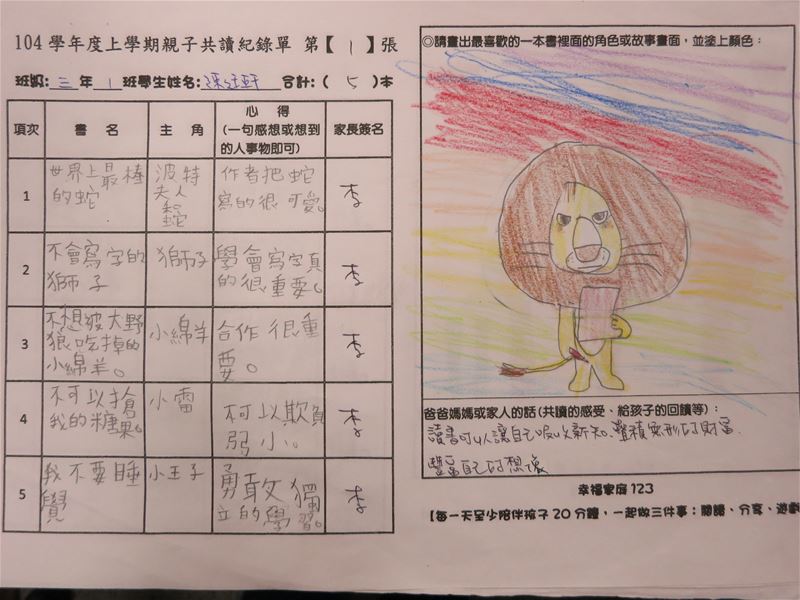 104學年度上學期親子共讀紀錄單 第【 1 】張
班級:三年 1 班學生姓名: 合計:( 5 )本
項次 書名 主角 心得 家長簽名
(一句感想或想到
的人事物即可)
1
世界上最棒
的蛇
波特
夫人
和
蛇
作者把蛇
寫的很可愛。
李
2
不會寫字的
獅子
獅子
學會寫字真
的很重要。
李
3
不想被大野
狼吃掉的
小綿羊。
小綿羊
合作很重
要。
李
4
不可以搶
我的糖果。
小雷
不可以欺負
弱小。
李
5
我不要睡
覺
小王子
勇敢文獨
立的學習。
李
◎請畫出最喜歡的一本書裡面的角色或故事畫面,並塗上顏色:
爸爸媽媽或家人的話(共讀的感受、給孩子的回饋等):
讀書可以讓自己吸收新知、累積無形的財富.
豐富自己的想像
幸福家庭 123
【每一天至少陪伴孩子 20 分鐘,一起做三件事:閱讀、分享、遊戲